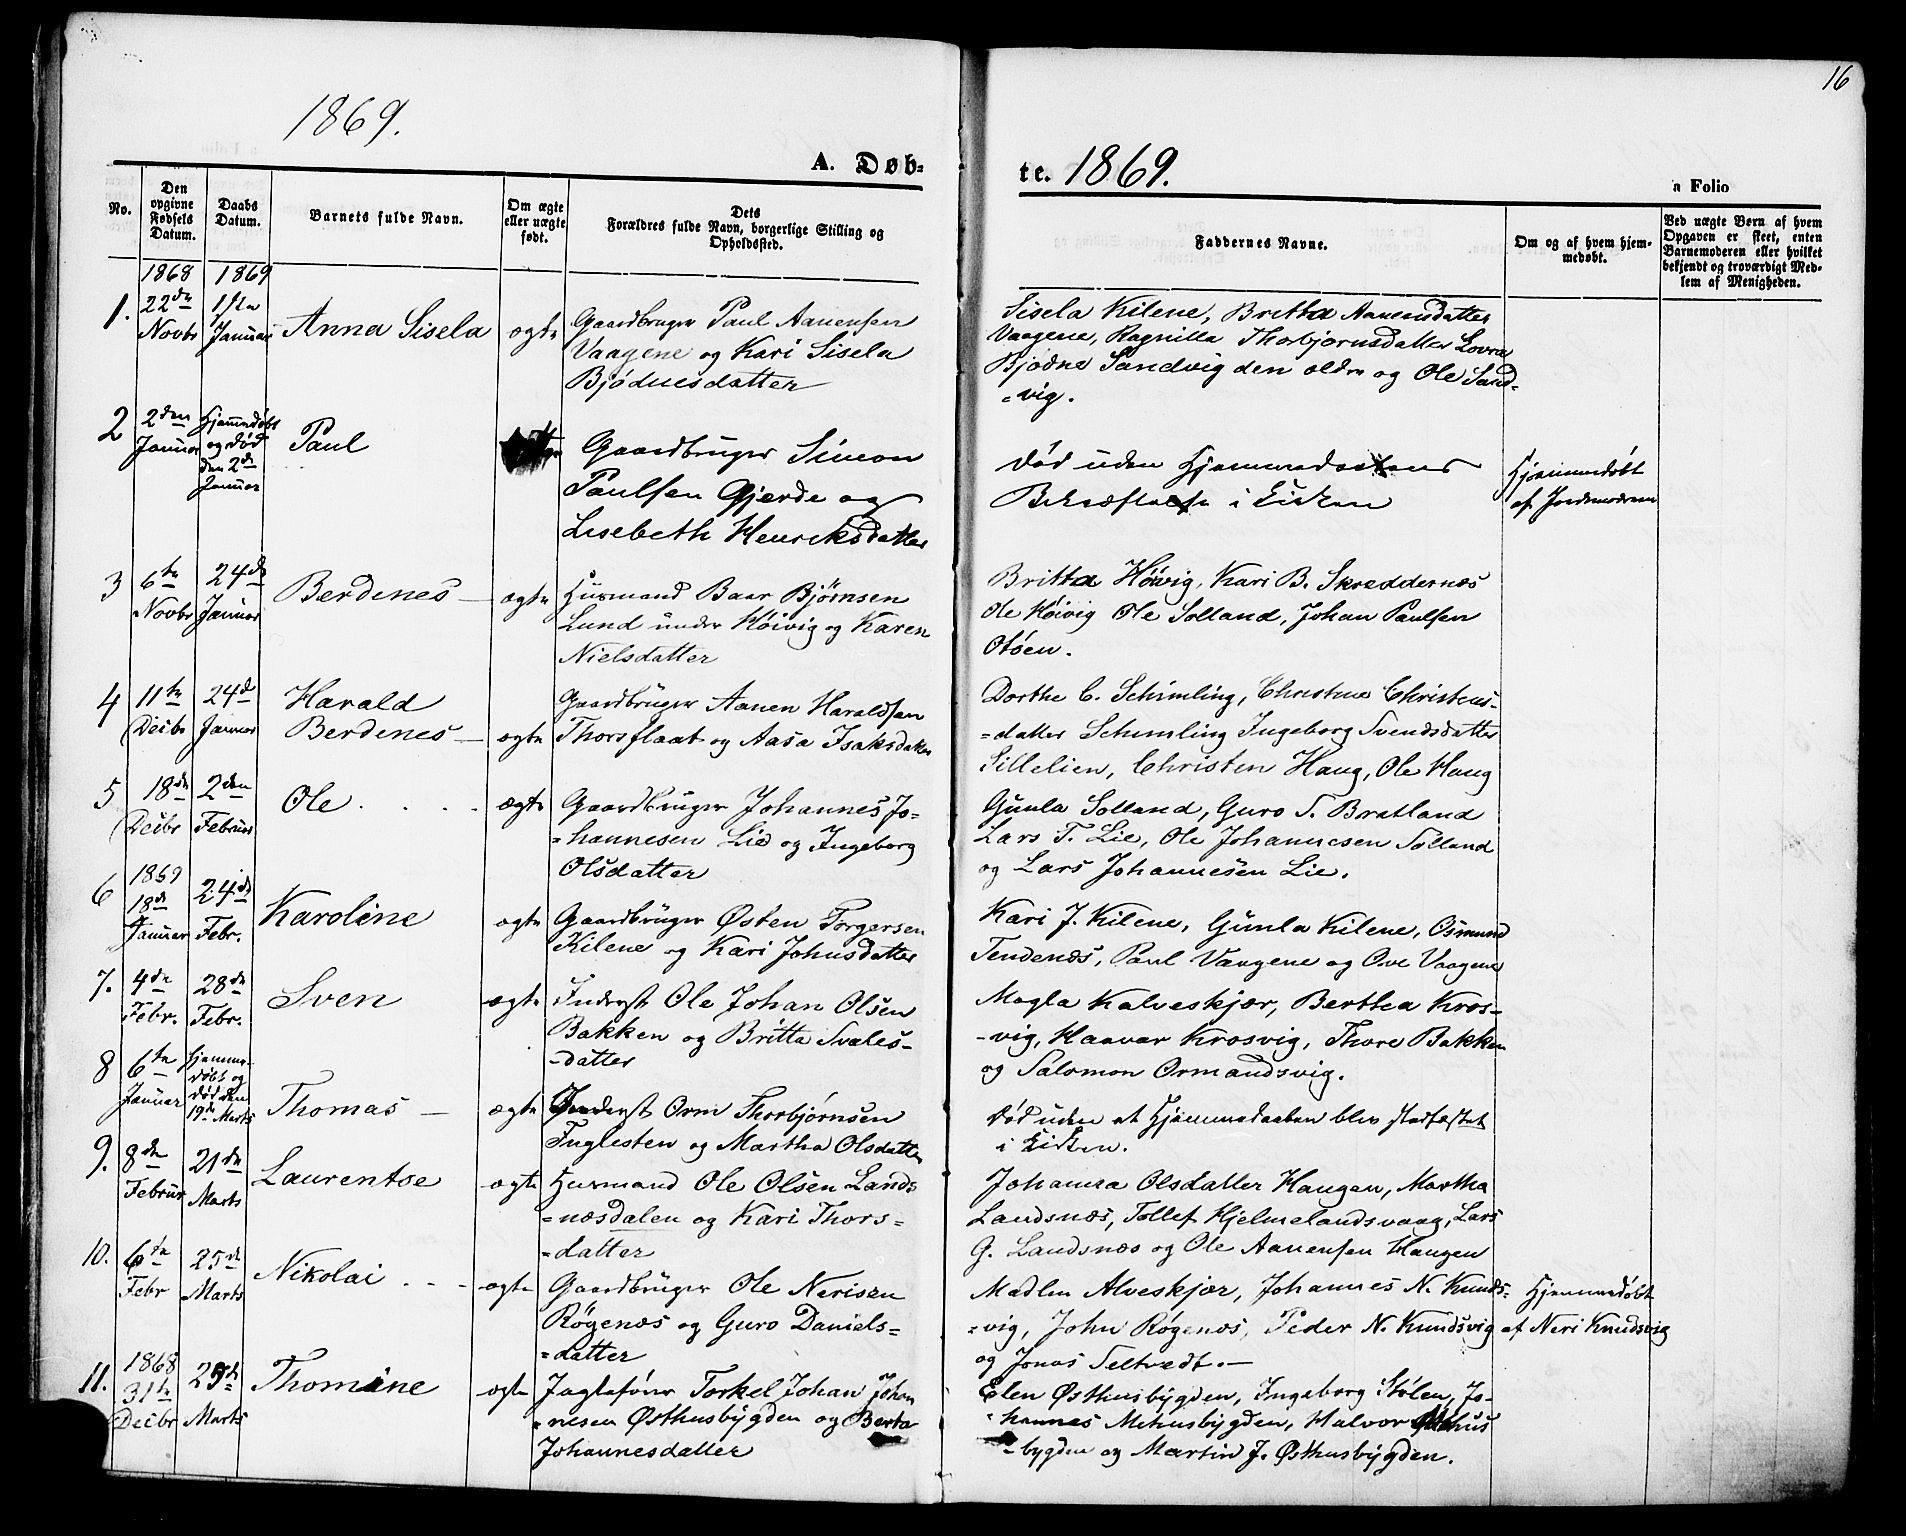 16
1869.
A. Døb-
te. 1869.
a Folio
No.
Den opgivne Fødsels Datum.
Daabs Datum.
Barnets fulde Navn.
Om ægte eller uægte født.
Dets Forældres fulde Navn, borgerlige Stilling og Opholdssted.
Faddernes Navne.
Om og af hvem hjemmedøbt.
Ved uægte Børn af hvem Opgaven er skeet, enten Barnemoderen eller hvilket bekjendt og troværdigt Medlem af Menigheden.
1868 1869
1. 22de Novbr
1ste Januar
Anna Sisela
ægte
Gaardbruger Paul Aanensen
Vaagene og Kari Sisela
Bjødnesdatter
Sisela Kilene, Britta Aanensdatter
Vaagene, Ragnilla Thorbjørnsdatter Lovra
Bjødne Sandvig den ældre og Ole Sand-
=vig.
2 2den Januar
Hjemmedøbt
og død
den 2de
Januar
Paul
Gaardbruger Simon
Paulsen Gjerde og
Lisebeth Henriksdatter
Død uden Hjemmedaabens
Bekræftelse i Kirken
Hjemmedøbt
af Jordemoderen
3 6te Novbr
24de Januar
Berdenes
ægte
Husmand Baar Bjørnsen
Lund under Høivig og Karen
Nielsdatter
Britta Høivig, Kari B. Skreddernæs
Ole Høivig Ole Solland, Johan Paulsen
Otøen.
4 11te Decbr
24de Januar
Harald
Berdenes
ægte
Gaardbruger Aanen Haraldsen
Thorsflaat og Aasa Isaksdatter
Dorthe C. Schimling, Christine Christens-
=datter Schimling Ingeborg Svendsdatter
Sillelien, Christen Haug, Ole Haug
5 18de Decbr
2den Februar
Ole
ægte
Gaardbruger Johannes Jo-
=hannesen Lie og Ingeborg
Olsdatter
Gunla Solland, Guro S. Bratland
Lars T. Lie, Ole Johannesen Solland
og Lars Johannesen Lie.
1869
6 18de Januar
24de Febr.
Karoline
ægte
Gaardbruger Østen Torgersen
Kilene og Kari Johnsdatter
Kari J. Kilene, Gunla Kilene, Osmund
Tendenæs, Paul Vaagene og Ove Vaagene
7. 4de Febr.
28de Febr.
Sven
ægte
Inderst Ole Johan Olsen
Bakken og Britta Svales-
-datter
Magla Kalveskjær, Berthea Kros-
-vig, Haavar Krosvig, Thore Bakken
og Salomon Ormandsvig.
8 6te Januar
Hjemme-
døbt og
død den
19de Marts
Thomas
ægte
Inderst Orm Thorbjørnsen
Fuglesten og Martha Olsdatter
Død uden at Hjemmedaaben blev stadfæstet
i Kirken.
9. 8de Februar
21de Marts
Laurentse
ægte
Husmand Ole Olsen Lands
=næsdalen og Kari Thors=
=datter
Johanna Olsdatter Haugen, Martha
Landsnæs, Tollef Hjelmelandsvaag, Lars
G. Landsnæs og Ole Aanensen Haugen
10. 6te Febr
25de Marts
Nikolai
ægte
Gaardbruger Ole Nerisen
Røgenæs og Guro Daniels=
=datter
Madlen Alveskjær, Johannes N. Knuds-
=vig, John Røgenæs, Peder N. Knudsvig
og Jonas Seltvedt.
Hjemmedøbt
af Neri Knudsvig
1868
11. 31te Decbr
25de Marts
Thomine
ægte
Jagtefører Torkel Johan Johan
=nesen Østhusbygden og Berta
Johannesdatter
Elen Østhusbygden, Ingeborg Stølen, Jo-
=hannes Mehusbygden, Halvor Østhus
=bygden og Martin J. Østhusbygden.